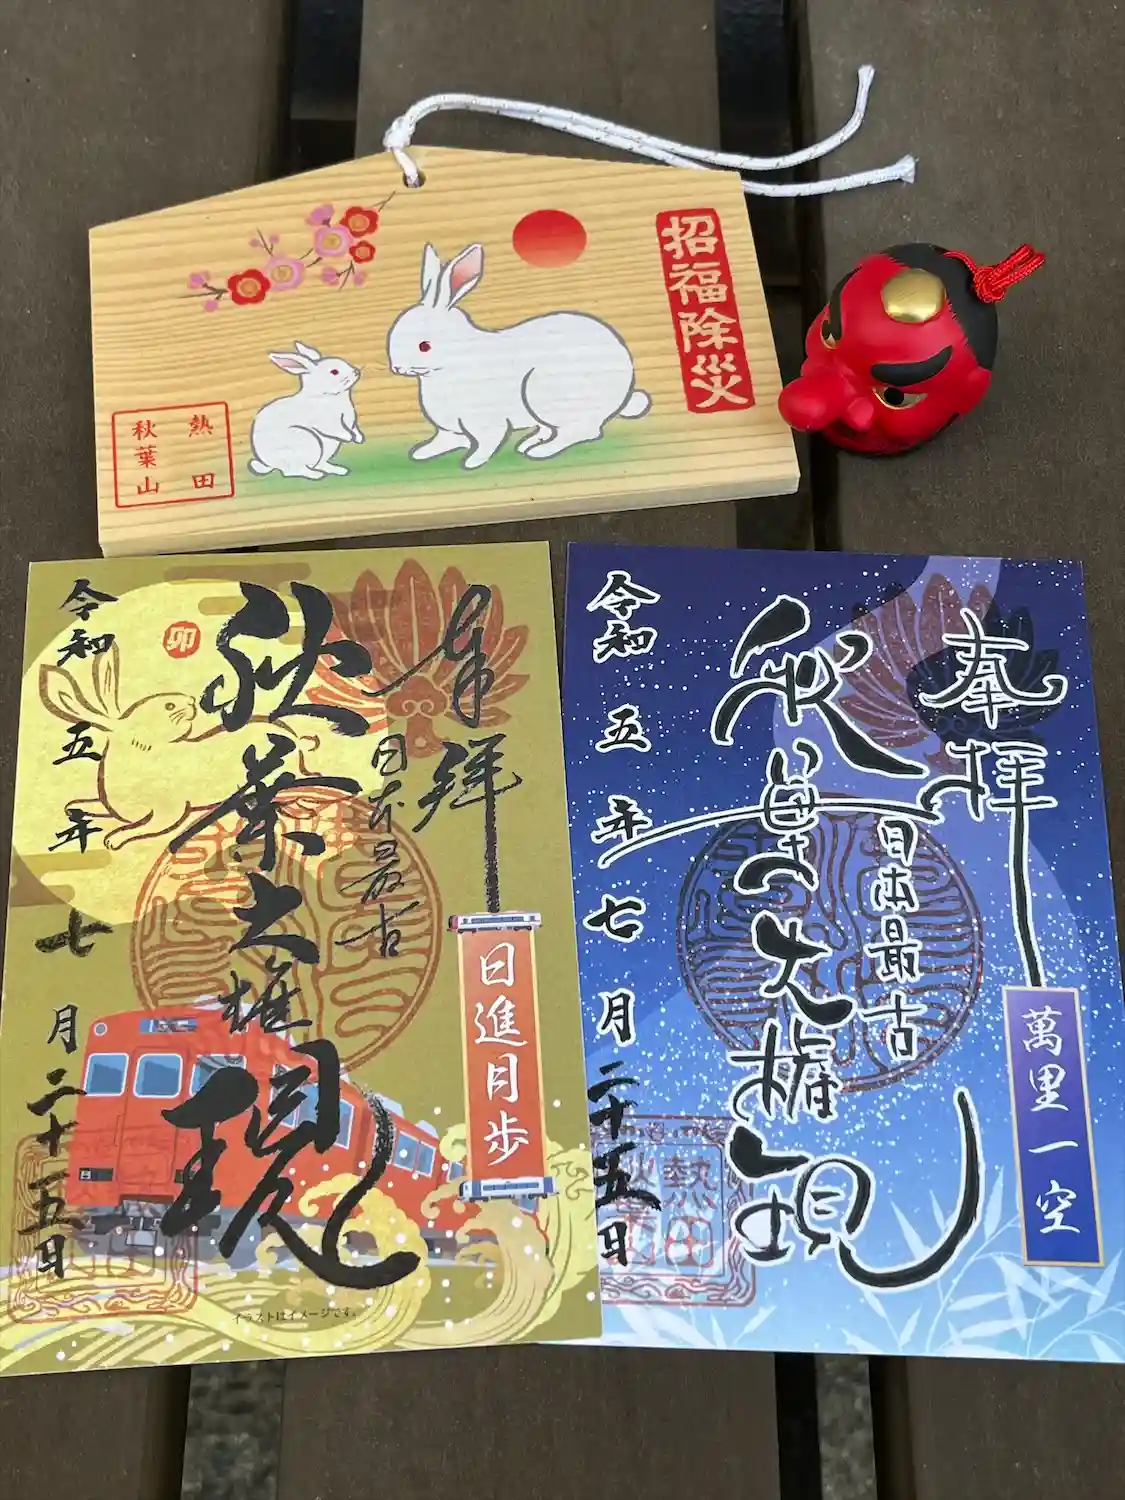 招福除災
熱田
秋葉山
奉拝
日本最古
秋葉大権現
日進月歩
卯
令和五年七月二十五日
イラストはイメージです。
奉拝
日本最古
秋葉大権現
萬里一空
令和五年七月二十五日
熱田